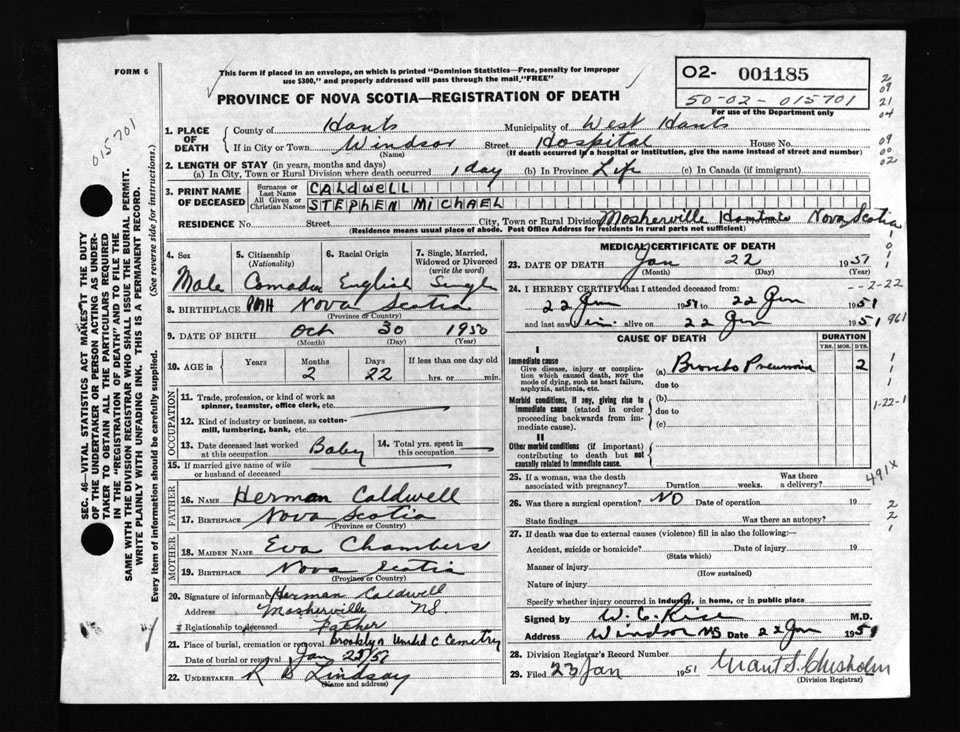 FORM 6
This form if placed in an envelope, on which is printed "Dominion Statistics—Free, penalty for improper
use $300," and properly addressed will pass through the mail "FREE"
PROVINCE OF NOVA SCOTIA—REGISTRATION OF DEATH
02- 001185
50-02-015701
For use of the Department only
2
09
21
04
09
00
02
015701
1. PLACE OF DEATH County of Hants Municipality of West Hants
If in City or Town Windsor Street Hospital House No.
(Name) (If death occurred in a hospital or institution, give the name instead of street and number)
2. LENGTH OF STAY (in years, months and days)
(a) In City, Town or Rural Division where death occurred 1 day (b) In Province Life (c) In Canada (if immigrant)
3. PRINT NAME OF DECEASED Surname or Last Name CALDWELL
All Given or Christian Names STEPHEN MICHAEL
RESIDENCE No. Street City, Town or Rural Division Mosherville Hants Co Nova Scotia
(Residence means usual place of abode. Post Office Address for residents in rural parts not sufficient)
4. Sex Male
5. Citizenship (Nationality) Canadian
6. Racial Origin English
7. Single, Married, Widowed or Divorced (write the word) Single
8. BIRTHPLACE PMH Nova Scotia
(Province or Country)
9. DATE OF BIRTH Oct 30 1950
(Month) (Day) (Year)
10. AGE in Years Months 2 Days 22 If less than one day old hrs. or min.
OCCUPATION
11. Trade, profession, or kind of work as
spinner, teamster, office clerk, etc.
12. Kind of industry or business, as cotton-
mill, lumbering, bank, etc.
13. Date deceased last worked at this occupation Baby
14. Total yrs. spent in this occupation
15. If married give name of wife
or husband of deceased
FATHER
16. NAME Herman Caldwell
17. BIRTHPLACE Nova Scotia
(Province or Country)
MOTHER
18. MAIDEN NAME Eva Chambers
19. BIRTHPLACE Nova Scotia
(Province or Country)
20. Signature of informant Herman Caldwell
Address Mosherville NS
Relationship to deceased Father
21. Place of burial, cremation or removal Brooklyn United C Cemetry
Date of burial or removal Jan 23/51
22. UNDERTAKER R B Lindsay
(Name and address)
MEDICAL CERTIFICATE OF DEATH
23. DATE OF DEATH Jan 22 1951
(Month) (Day) (Year)
24. I HEREBY CERTIFY that I attended deceased from:
22 Jan 1951 to 22 Jan 1951
and last saw him alive on 22 Jan 1951
--2-22
961
CAUSE OF DEATH
DURATION
YRS. MOS. DYS.
I
Immediate cause
Give disease, injury or complica-
tion which caused death, NOT the
mode of dying, such as heart failure,
asphyxia, asthenia, etc.
(a) Broncho Pneumonia 2
due to
Morbid conditions, if any, giving rise to
immediate cause (stated in order
proceeding backwards from im-
mediate cause).
(b)
due to
(c)
1-22-1
II
Other morbid conditions (if important)
contributing to death but not
causally related to immediate cause.
491X
25. If a woman, was the death associated with pregnancy? Duration weeks. Was there a delivery?
26. Was there a surgical operation? NO Date of operation 19
State findings Was there an autopsy?
2
2
1
27. If death was due to external causes (violence) fill in also the following:—
Accident, suicide or homicide? Date of injury 19
(State which)
Manner of injury
(How sustained)
Nature of injury
Specify whether injury occurred in industry, in home, or in public place
Signed by W. C. Rice M.D.
Address Windsor NS Date 22 Jan 1951
28. Division Registrar's Record Number
29. Filed 23 Jan 1951 Grant S. Chisholm
(Division Registrar)
SEC. 46—VITAL STATISTICS ACT MAKES IT THE DUTY
OF THE UNDERTAKER OR PERSON ACTING AS UNDER-
TAKER TO OBTAIN ALL THE PARTICULARS REQUIRED
IN THE "REGISTRATION OF DEATH" AND TO FILE THE
SAME WITH THE DIVISION REGISTRAR WHO SHALL ISSUE THE BURIAL PERMIT.
WRITE PLAINLY WITH UNFADING INK. THIS IS A PERMANENT RECORD.
Every item of information should be carefully supplied. (See reverse side for instructions.)